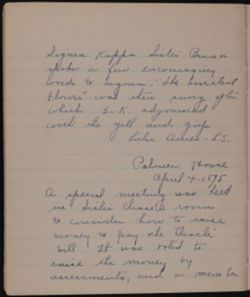 Sigma Kappa. Sister Bunson
spoke a few encouraging
words to Sigma. "The
flowers" was then sung after
which S. K. adjourned
with the yell and grip
Ames - S.S.
Palmer House
April 4 - 1895
A special meeting was held
in Sister room
to consider how to raise
money to pay the
bill. It was voted to
raise the money by
assessments, and a